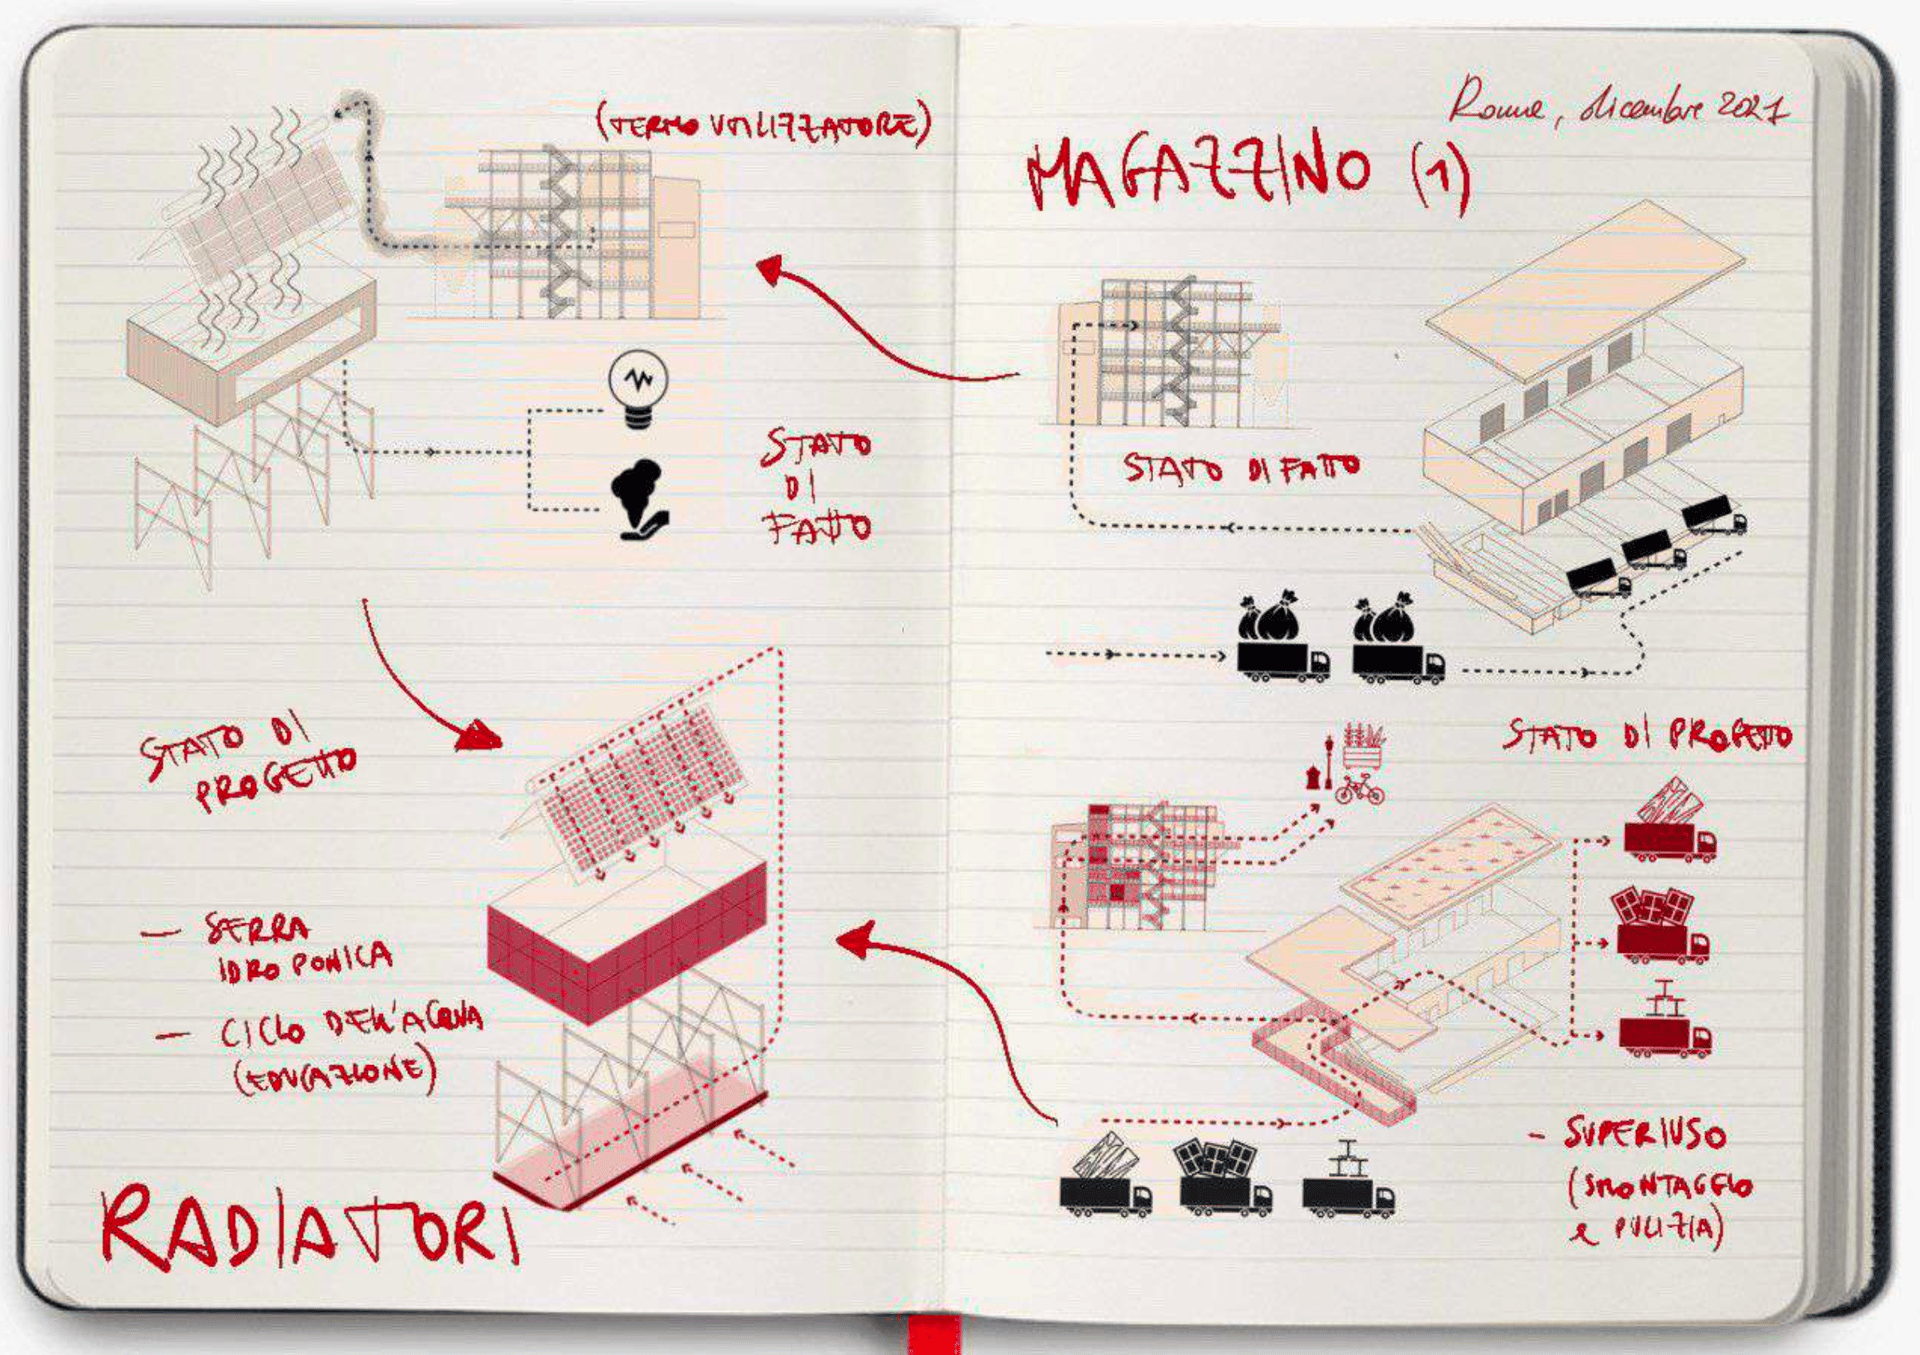 (TERMO UTILIZZATORE)
STATO
DI
FATTO
STATO DI
PROGETTO
– SERRA
IDROPONICA
– CICLO DELL'ACQUA
(EDUCAZIONE)
RADIATORI
Roma, dicembre 2021
MAGAZZINO (1)
STATO DI FATTO
STATO DI PROGETTO
- SUPERIUSO
(SMONTAGGIO
e PULIZIA)